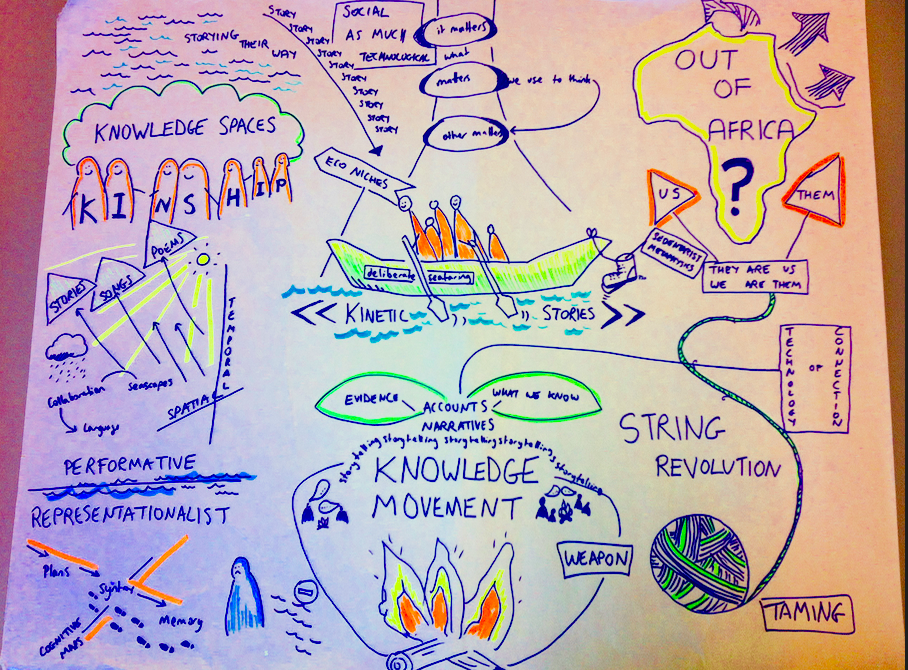 STORY
STORY
STORY
STORY
STORY
STORY
STORY
STORY
STORY
STORY
STORYING THEIR WAY
SOCIAL
AS MUCH
TECHNOLOGICAL
it matters
what
matters
we use to think
other matters
OUT
OF
AFRICA
?
KNOWLEDGE SPACES
KINSHIP
ECO NICHES
US
THEM
SEDENTARIST
METAPHYSICS
THEY ARE US
WE ARE THEM
STORIES
SONGS
POEMS
TEMPORAL
SPATIAL
Collaboration
Seascapes
Language
deliberate seafaring
KINETIC STORIES
TECHNOLOGY
OF
CONNECTION
EVIDENCE
WHAT WE KNOW
ACCOUNTS
NARRATIVES
storytelling storytelling storytelling storytelling storytelling
KNOWLEDGE
MOVEMENT
STRING
REVOLUTION
WEAPON
TAMING
PERFORMATIVE
REPRESENTATIONALIST
Plans
Syntax
Memory
COGNITIVE
MAPS